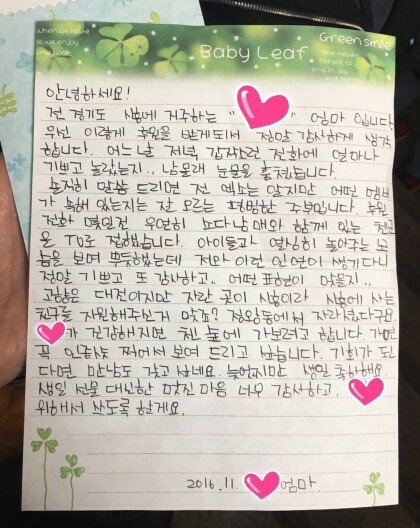 when we have
me, we enjoy
urely walk.
Baby Leaf
Green Smile
She never
forgot to
sing in joy
and
안녕하세요!
전 경기도 시흥에 거주하는 " 엄마 입니다.
우선 이렇게 후원을 받게되서 정말 감사하게 생각
합니다. 어느날 저녁 갑작스런 전화에 얼마나
기쁘고 놀랐는지.. 남몰래 눈물을 훔쳤습니다.
솔직히 말씀 드리면 전 엑소는 알지만 어떤 멤버
가 속해 있는지는 잘 모르는 평범한 주부입니다. 후원
전화 몇일전 우연히 오다난매와 함께 있는 첸
을 TV로 접했습니다. 아이들과 열심히 놀아주는 모
습을 보며 뿌듯했는데 저와 이런 인연이 생기다니
정말 기쁘고 또 감사하고.. 어떤 표현이 맞을지..
고향은 대전이지만 자란 곳이 시흥이라 시흥에 사는
친구들 자원해주신거 맞죠? 정왕동에서 자라셨다구요.
가 건강해지면 첸 높에 가보려고 합니다. 가면
꼭 인증샷도 찍어서 보여 드리고 싶습니다. 기회가 된
다면 만남도 갖고 싶네요. 늦었지만 생일 축하해요.
생일 선물 대신한 멋진 마음 너무 감사하고.
위해서 쓰도록 할게요.
2016. 11. 엄마.